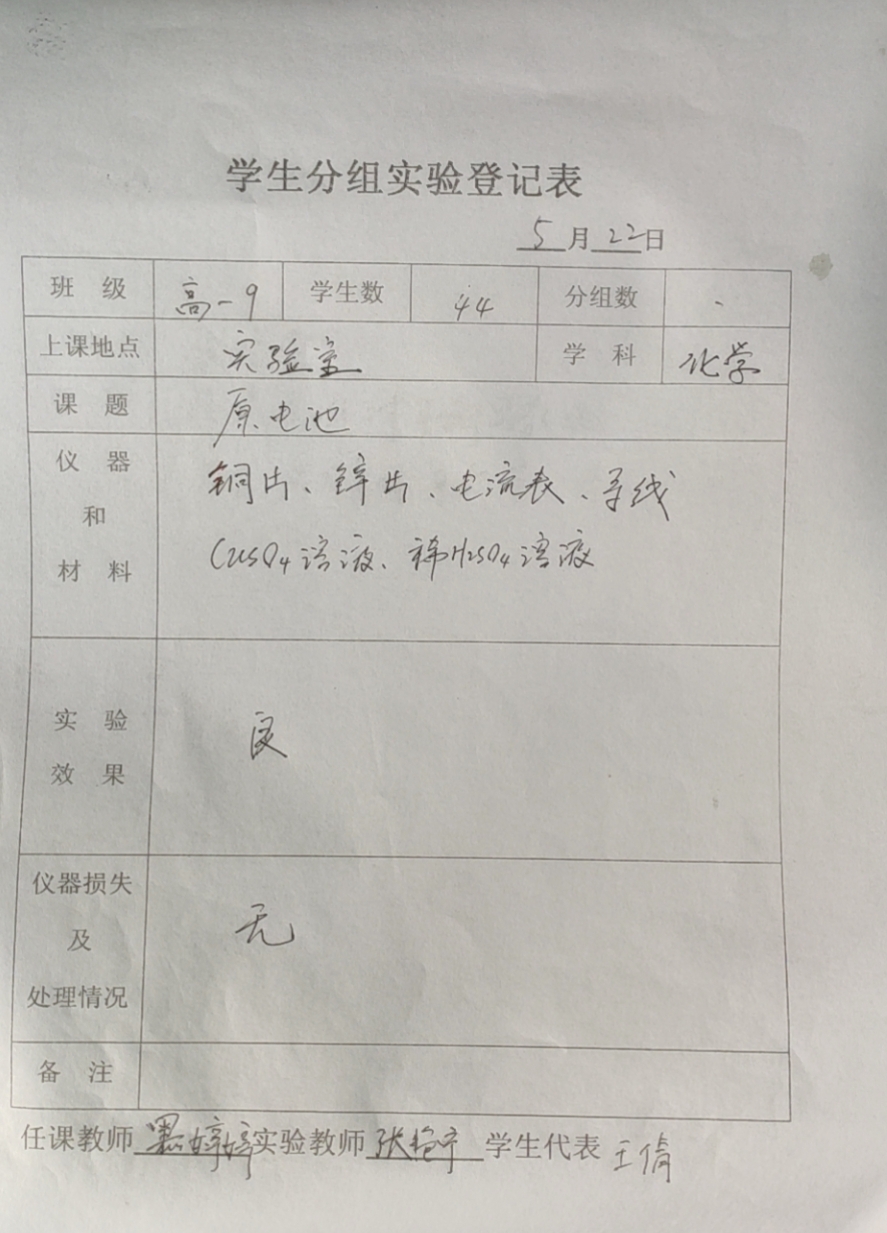 学生分组实验登记表
5月22日
班 级 高一9 学生数 44 分组数
上课地点 实验室 学 科 化学
课 题 原电池
仪 器
和
材 料
铜片、锌片、电流表、导线
CuSO4溶液、稀H2SO4溶液
实 验
效 果
良
仪器损失
及
处理情况
无
备 注
任课教师 婷婷 实验教师 张 学生代表 王倩